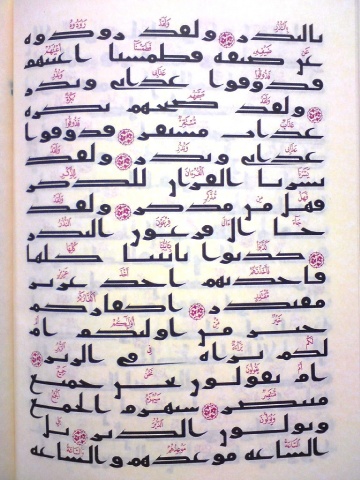 بالنذر ولقد رودوه
عن ضيفه فطمسنا اعينهم
فذوقوا عذابى ونذر
ولقد صبحهم بكره
عذاب مستقر فذوقوا
عذابى ونذر ولقد
يسرنا القران للذكر
فهل من مدكر ولقد
جا ال فرعون النذر
كذبوا بايتنا كلها
فاخذنهم اخذ عزيز
مقتدر اكفاركم
خير من اوليكم ام
لكم براه فى الزبر
ام يقولون نحن جميع
منتصر سيهزم الجمع
ويولون الدبر بل
الساعه موعدهم والساعه